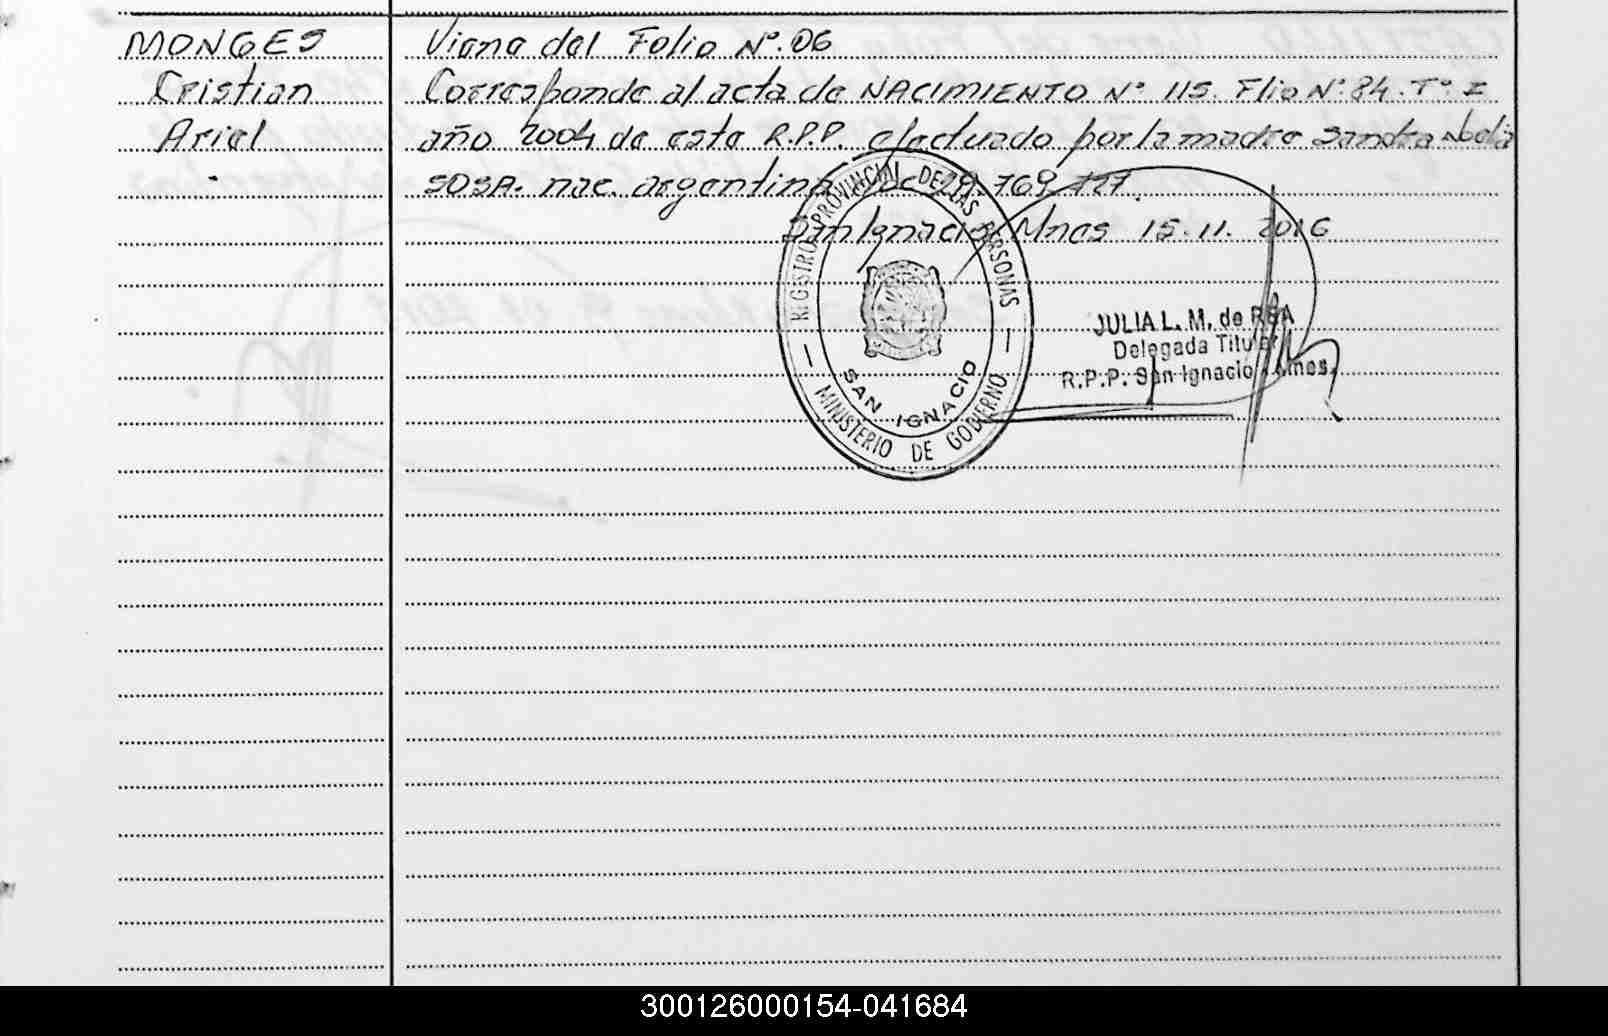 MONGES
Cristian
Ariel
Viene del Folio N°. 06
Corresponde al acta de NACIMIENTO N° 115. Flio N° 84. T° I
año 2004 de este R.P.P. efectuado por la madre Sandra Noelia
SOSA. nac. argentina 769.727
San Ignacio Mnes 15.11.2016
REGISTRO PROVINCIAL DE LAS PERSONAS
SAN IGNACIO
MINISTERIO DE GOBIERNO
JULIA L. M. de
Delegada Titular
R.P.P. San Ignacio Mnes.
300126000154-041684